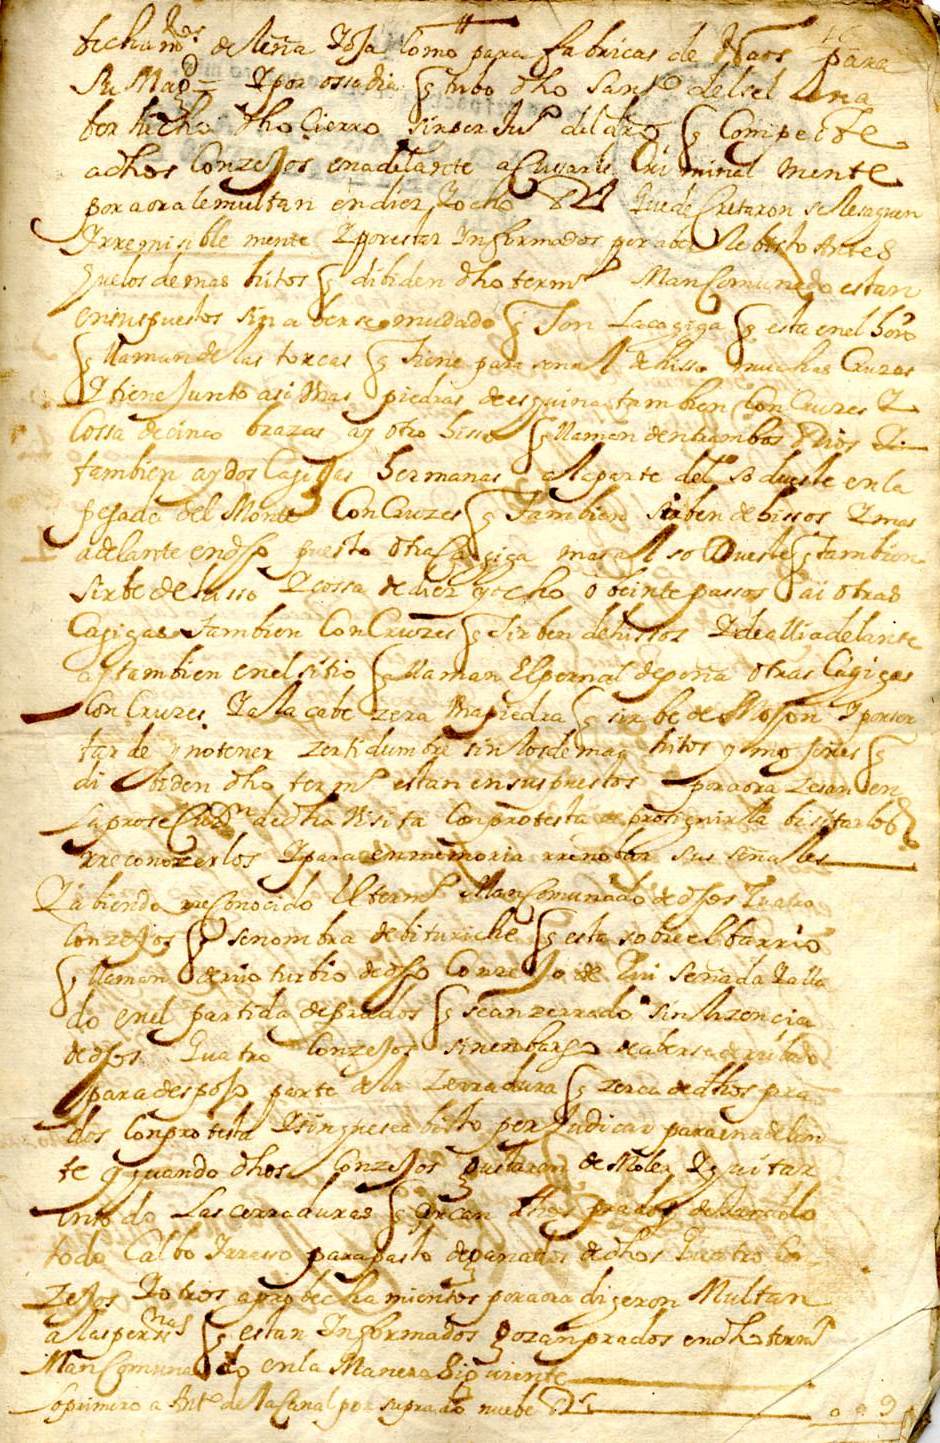 techam.os de leña Roja como para fabricas de Naos para
Su Mag.d = Y por ossadia q tubo dho San de del sel
ber hecho dho Cierro sin per Ju.o del dro q Compecte
a dhos Conzejos en adelante a Cussarle Criminal mente
por aora le multan en diez Y ocho Rs Que de Cretaron se le saquen
Yrremisible mente Y por estar Informados por aber le bisto Antes
q los demas hitos q dibiden dho term.o Man Comunado estan
en sus puestos sin a berse mudado q Son La cagiga q esta en el horo
q llaman de las torcas q tiene para senal de hisso muchas Cruzes
Y tiene Junto asi Unas piedras de esquina tambien Con Cruzes Y
Cossa de cinco brazas ay otro hisso q llaman de entrambos Rios Y
tambien ay dos Cagigas hermanas a la parte del so dueste en la
pejada del Monte Con Cruzes q tambien sirben de hissos Y mas
adelante en dho puesto otra Cagiga mas al so Dueste q tambien
sirbe de hisso Y cossa de diez y ocho o beinte passos ai otras
Cagigas tambien Con Cruzes q Sirben de hissos Y de alli adelante
ay tambien en el sitio q llaman El pernal de peña otras Cagigas
Con Cruzes Y a la cabe zera Una piedra q sirbe de Mojon Y por ser
tarde y no tener zertidumbre sin los demas hitos y mojones q
di biden dho term.o estan en sus puestos por aora zesan en
La prose Cuz.on de dha Visita Con protesta de proseguirla bisitarlos
rreconozerlos Y para en memoria rrenobar sus señales
Y abiendo rreConocido El term.o Man Comunado de dhos Quatro
Conzejos q se nombra de bituriche q esta sobre el barrio
q llaman de rrio turbio de dho Conzejo de Qui señada Y alla
do en el partida de prados q se an zerrado sin lizencia
de dhos Quatro Conzejos sin enbargo de aberse derribado
para despojo parte de la zerradura q zerca de dhos pra
dos Con protesta Y sin q sea bisto per Judicar para en adelan
te q quando dhos Conzejos gustaron de Moler Y quitar
en todo Las cerraduras q zercan dhos prados dejandolo
todo Calbo Y rrasso para pasto de ganados de dhos Quatro Con
zejos Y otros aprobechamientos por aora dijeron Multan
a las personas q estan Informados gozan prados en dho term.o
Man Comunado en la Manera Siguiente
Lo primero a Ant.o de la Canal por su prado nuebe Rs 009